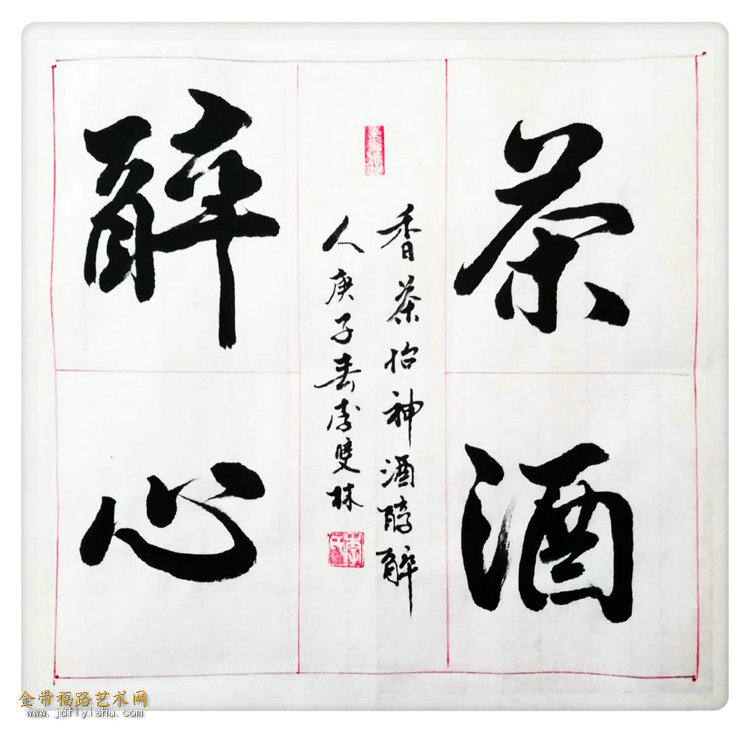 茶酒
香茶怡神酒醇醉
人庚子春李雙林
醉心
金带福路艺术网
www.jdflyishu.com